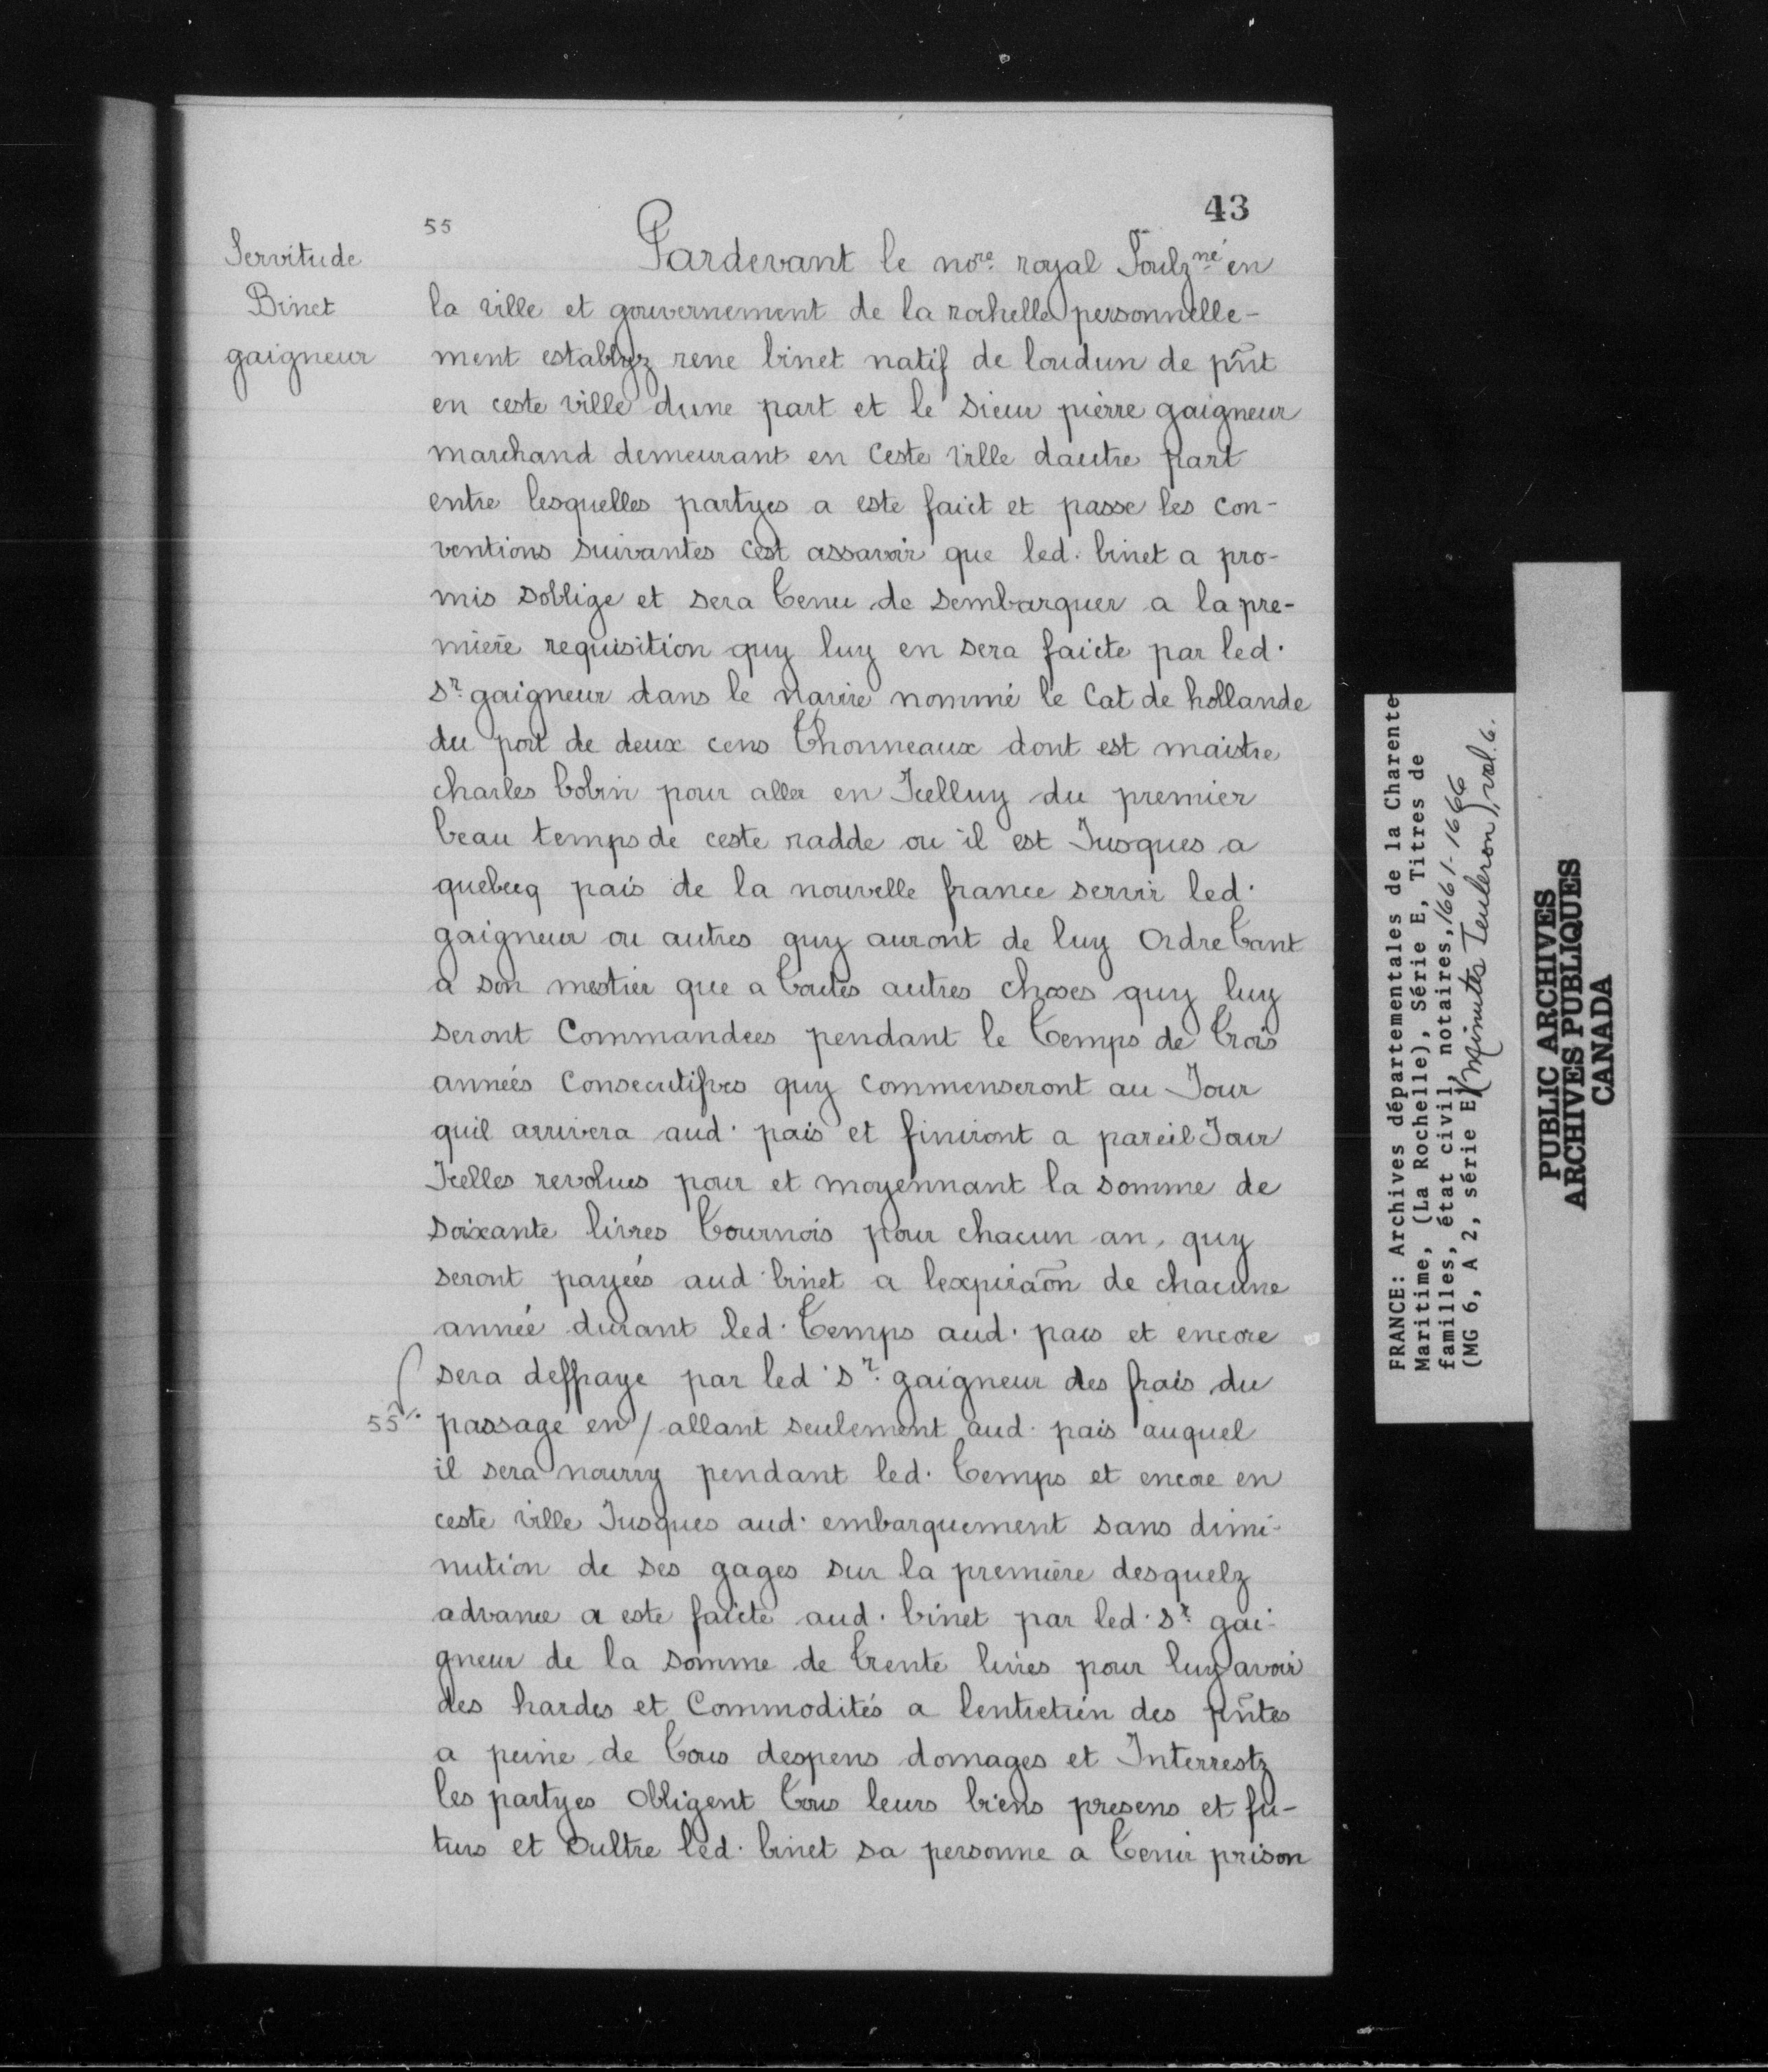 43
55
Servitude
Binet
gaigneur
Pardevant le no.re royal Soulz.né en
la ville et gouvernement de la rochelle personnelle-
ment establyz rene binet natif de loudun de pñt
en ceste ville dune part et le sieur pierre gaigneur
marchand demeurant en Ceste ville dautre part
entre lesquelles partyes a este faict et passe les con-
ventions suivantes cest assavoir que led. binet a pro-
mis soblige et sera tenu de sembarquer a la pre-
miere requisition quy luy en sera faicte par led.
sr. gaigneur dans le navire nommé le Cat de hollande
du port de deux cens thonneaux dont est maistre
charles bobin pour aller en Icelluy du premier
beau temps de ceste radde ou il est Jusques a
quebecq pais de la nouvelle france servir led.
gaigneur ou autres quy auront de luy Ordre tant
a son mestier que a toutes autres choses quy luy
seront Commandees pendant le temps de trois
années Consecutifves quy commenseront au Jour
quil arrivera aud. pais et finiront a pareil Jour
Icelles revolues pour et moyennant la somme de
soixante livres tournois pour chacun an, quy
seront payées aud. binet a lexpiraõn de chacune
année durant led. temps aud. pais et encore
sera deffraye par led. sr. gaigneur des frais du
55 passage en / allant seulement aud. pais auquel
il sera nourry pendant led. temps et encore en
ceste ville Jusques aud. embarquement sans dimi-
nution de ses gages sur la première desquelz
advance a este faicte aud. binet par led. sr. gai-
gneur de la somme de trente livres pour luy avoir
des hardes et Commodités a lentretien des pñtes
a peine de tous despens domages et Interrestz
les partyes Obligent tous leurs biens presens et fu-
turs et Oultre led. binet sa personne a tenir prison
FRANCE: Archives départementales de la Charente
Maritime, (La Rochelle), Série E, Titres de
familles, état civil, notaires, 1661-1666
(MG 6, A 2, série E) (Minutes Teuleron), vol. 6.
PUBLIC ARCHIVES
ARCHIVES PUBLIQUES
CANADA